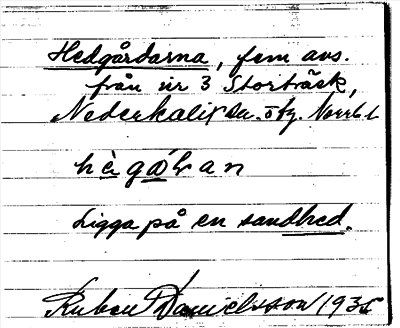 Hedgårdarna, fem avs.
från nr 3 Storträsk,
Nederkalix sn. Norrb.
Ligga på en sandhed.
Ruben Danielsson 1935